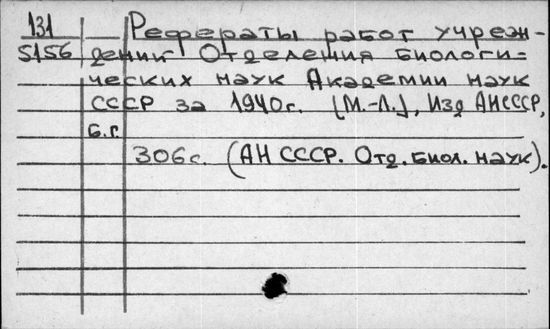 131 — Рефераты работ учреж-
5156 дений Отделения биологи-
ческих наук Академии наук
СССР за 1940г. (М.-Л.), Изд АНСССР,
б.г.
306с. (АН СССР. Отд. биол. наук).